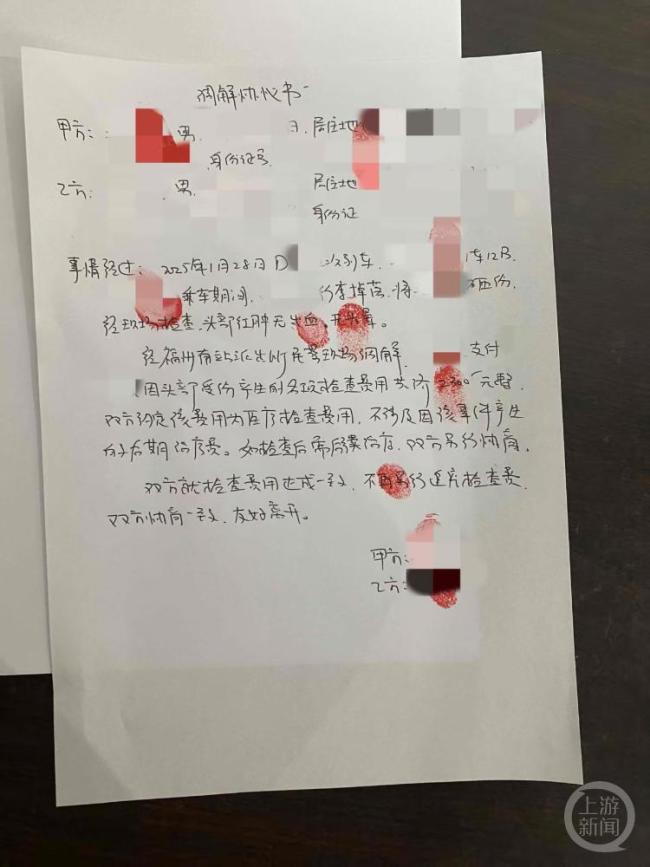 调解协议书
甲方: 男. 日. 居住地
身份证号
乙方: 男. 居住地
身份证
事情经过: 2025年1月28日D 次列车. 1车12号
乘车期间. 行李掉落.将 砸伤.
经现场检查.头部红肿无出血.
经福州南站派出所民警现场调解. 支付
因头部受伤产生的各项检查费用共计2300元整.
双方约定该费用为医疗检查费用.不涉及因该事件产生
的后期治疗费.如检查后需后续治疗.双方另行协商.
双方就检查费用达成一致.不再另行追究检查费.
双方协商一致.友好离开。
甲方:
乙方:
上游新闻